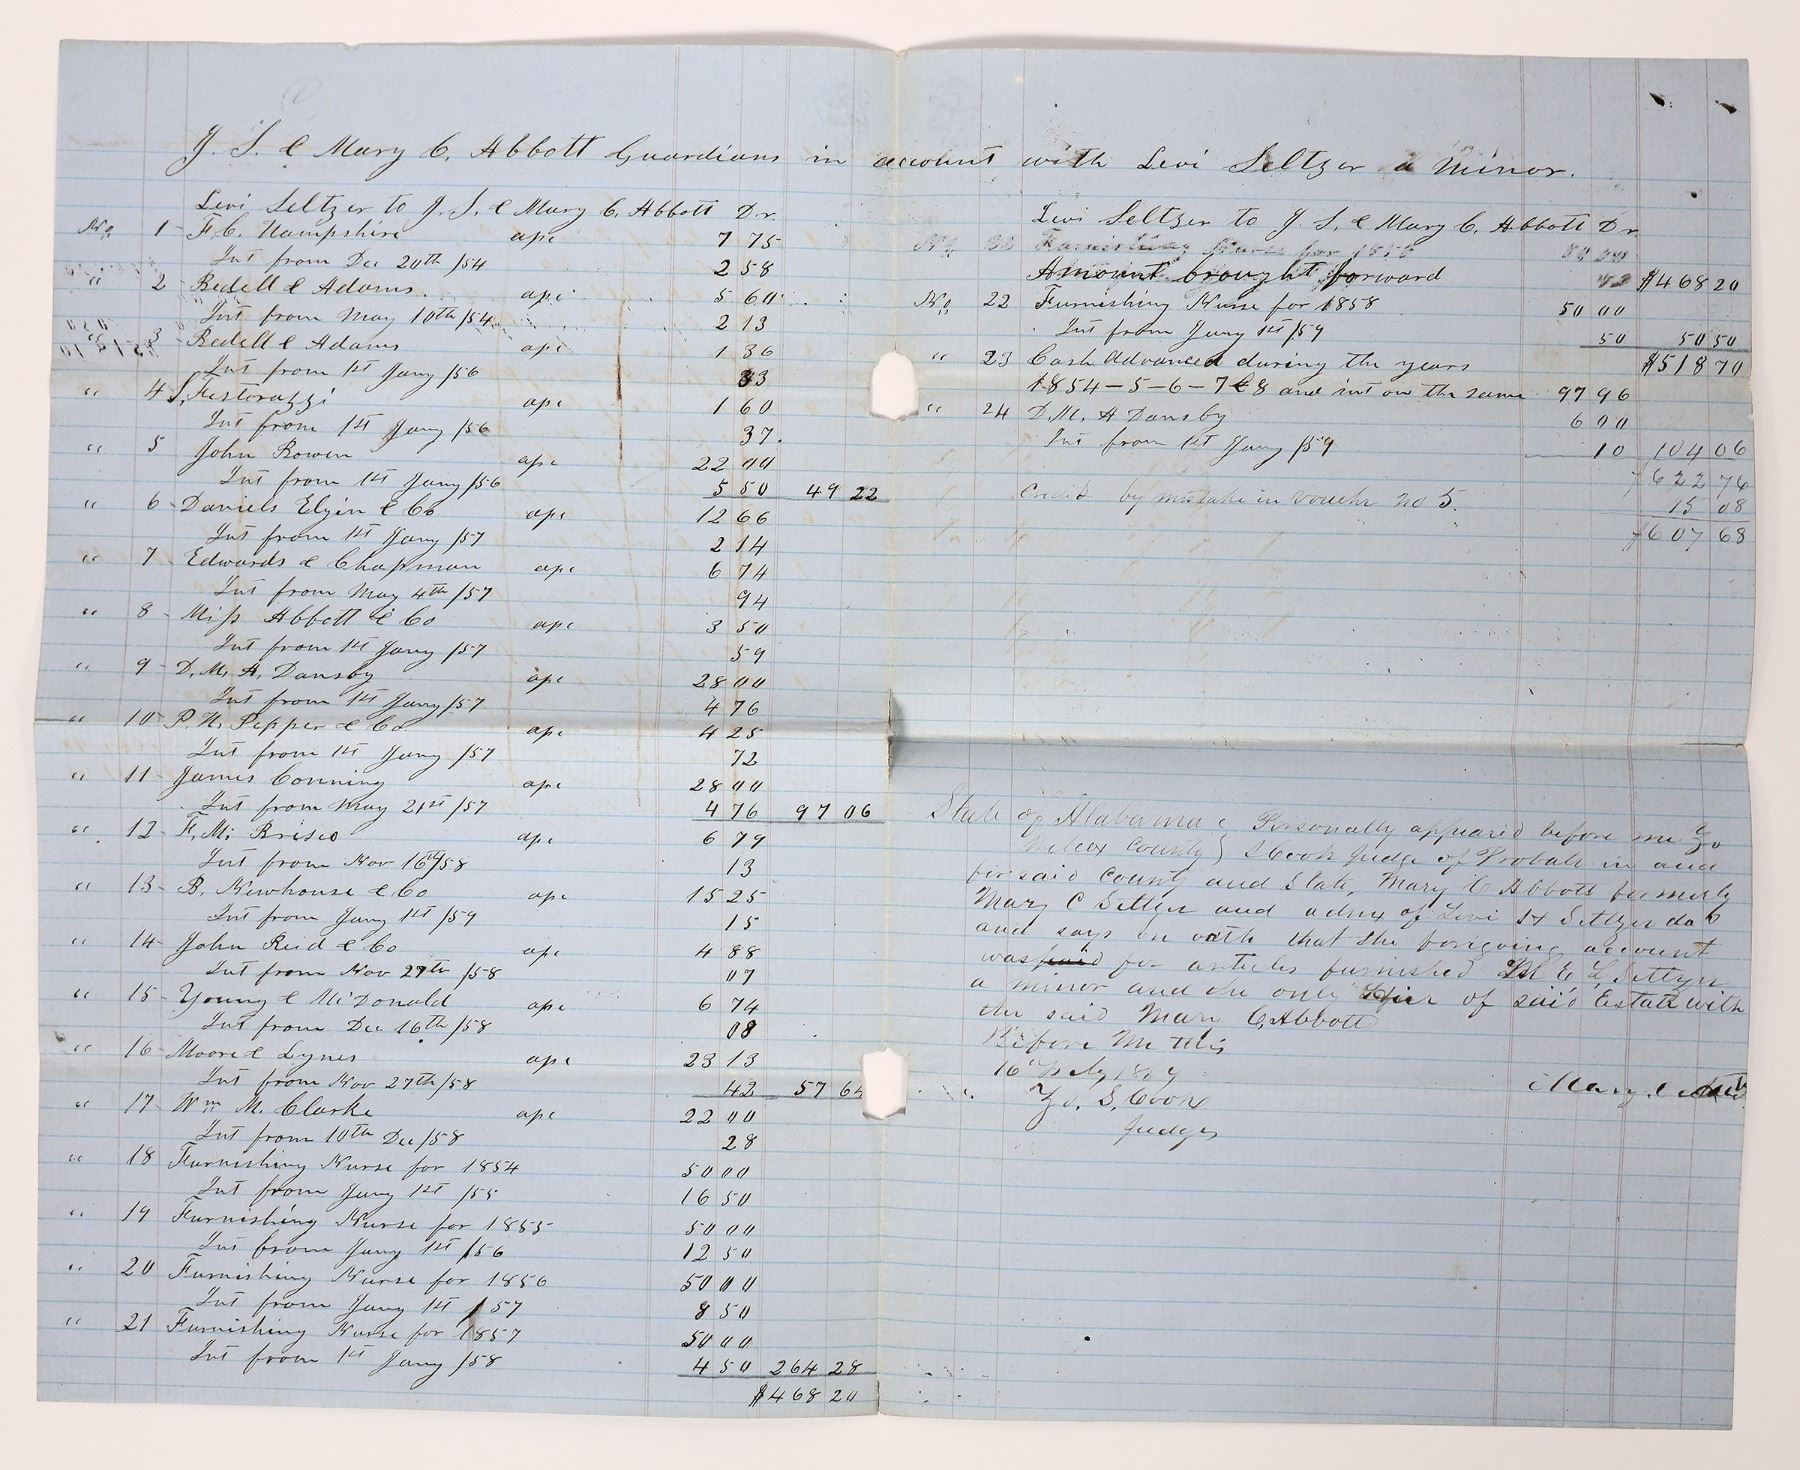 J. S. & Mary C. Abbott Guardians in account with Levi Seltzer a Minor.
Levi Seltzer to J. S. & Mary C. Abbott Dr.
No. 1 - F. C. Hampshire apc 7 75
Int from Dec 20th /54 2 58
" 2 - Bedell & Adams apc 5 60
Int from May 10th /54 2 13
3 - Bedell & Adams apc 1 36
Int from 1st Jany /56 33
" 4 S. Festorazzi apc 1 60
Int from 1st Jany /56 37.
" 5 John Bowen apc 22 00
Int from 1st Jany /56 5 50 49 22
" 6 - Daniels Elgin & Co apc 12 66
Int from 1st Jany /57 2 14
" 7 - Edwards & Chapman apc 6 74
Int from May 4th /57 94
" 8 - Miss Abbott & Co apc 3 50
Int from 1st Jany /57 59
" 9 - D. M. A. Dansby apc 28 00
Int from 1st Jany /57 4 76
" 10 - P. H. Pepper & Co apc 4 25
Int from 1st Jany /57 72
" 11 - James Conning apc 28 00
Int from May 21st /57 4 76 97 06
" 12 - F. M. Brisco apc 6 79
Int from Nov 16th /58 13
" 13 - B. Newhouse & Co apc 15 25
Int from Jany 1st /59 15
" 14 - John Reid & Co apc 4 88
Int from Nov 27th /58 07
" 15 - Young & McDonald apc 6 74
Int from Dec 16th /58 08
" 16 - Moore & Lynes apc 23 13
Int from Nov 27th /58 42 57 64
" 17 Wm M. Clarke apc 22 00
Int from 10th Dec /58 28
" 18 Furnishing Nurse for 1854 50 00
Int from Jany 1st /55 16 50
" 19 Furnishing Nurse for 1855 50 00
Int from Jany 1st /56 12 50
" 20 Furnishing Nurse for 1856 50 00
Int from Jany 1st /57 8 50
" 21 Furnishing Nurse for 1857 50 00
Int from 1st Jany /58 4 50 264 28
$468 20
Levi Seltzer to J. S. & Mary C. Abbott Dr
Amount brought forward $468 20
No. 22 Furnishing Nurse for 1858 50 00
Int from Jany 1st /59 50 50 50
$518 70
" 23 Cash Advanced during the years
1854-5-6-7 & 8 and int on the same 97 96
" 24 D. M. A Dansby 6 00
Int from 1st Jany /59 10 104 06
$622 76
Credit by mistake in voucher no 5. 15 08
$607 68
State of Alabama } Personally appeared before me Zo
Wilcox County } S Cook Judge of Probate in and
for said County and State, Mary C Abbott formerly
Mary C Seltzer and admx of Levi H Seltzer
and says on oath that the foregoing account
was paid for articles furnished Seltzer
a minor and the only heir of said Estate with
the said Mary C Abbott
Before Me this
16
Zo. S. Cook
Judge
Mary C